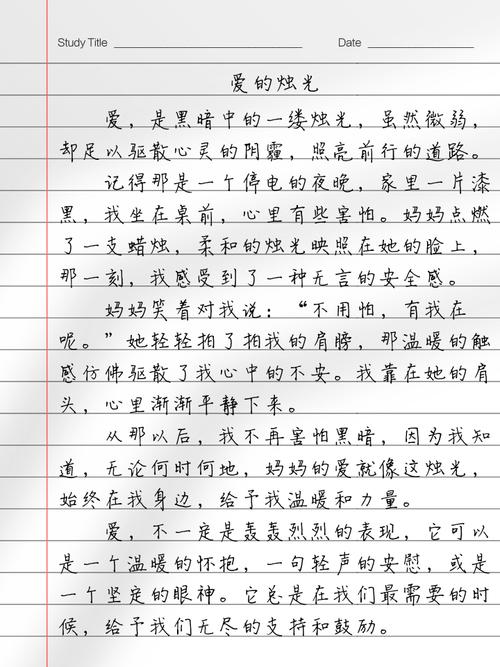 Study Title Date
爱的烛光
爱，是黑暗中的一缕烛光，虽然微弱，
却足以驱散心灵的阴霾，照亮前行的道路。
记得那是一个停电的夜晚，家里一片漆
黑，我坐在桌前，心里有些害怕。妈妈点燃
了一支蜡烛，柔和的烛光映照在她的脸上，
那一刻，我感受到了一种无言的安全感。
妈妈笑着对我说：“不用怕，有我在
呢。”她轻轻拍了拍我的肩膀，那温暖的触
感仿佛驱散了我心中的不安。我靠在她的肩
头，心里渐渐平静下来。
从那以后，我不再害怕黑暗，因为我知
道，无论何时何地，妈妈的爱就像这烛光，
始终在我身边，给予我温暖和力量。
爱，不一定是轰轰烈烈的表现，它可以
是一个温暖的怀抱，一句轻声的安慰，或是
一个坚定的眼神。它总是在我们最需要的时
候，给予我们无尽的支持和鼓励。